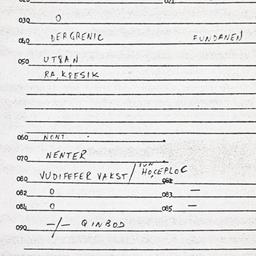 030 0
040 DERGRENIC FUNDANEN
050 UTBAN
RA, KPESIK
060 NONT.
070 NENTER
080 VUDIFEFER VAKST/ HOCEPLOC
082 0 083 —
084 0 085 —
090 -/- QINBOD